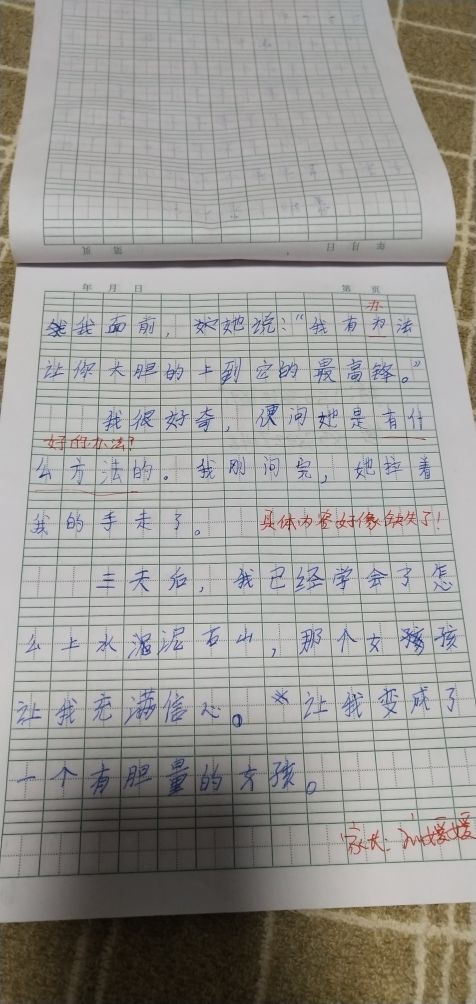 年 月 日 第 页
办
我面前，她说：“我有为法
让你大胆的上到它的最高锋。”
我很好奇，便问她是有什
好的办法？
么方法的。我刚问完，她拉着
我的手走了。 具体内容好像缺失了！
三天后，我已经学会了怎
么上水泥石山，那个女孩
让我充满信心。让我变成了
一个有胆量的女孩。
家长：媛媛